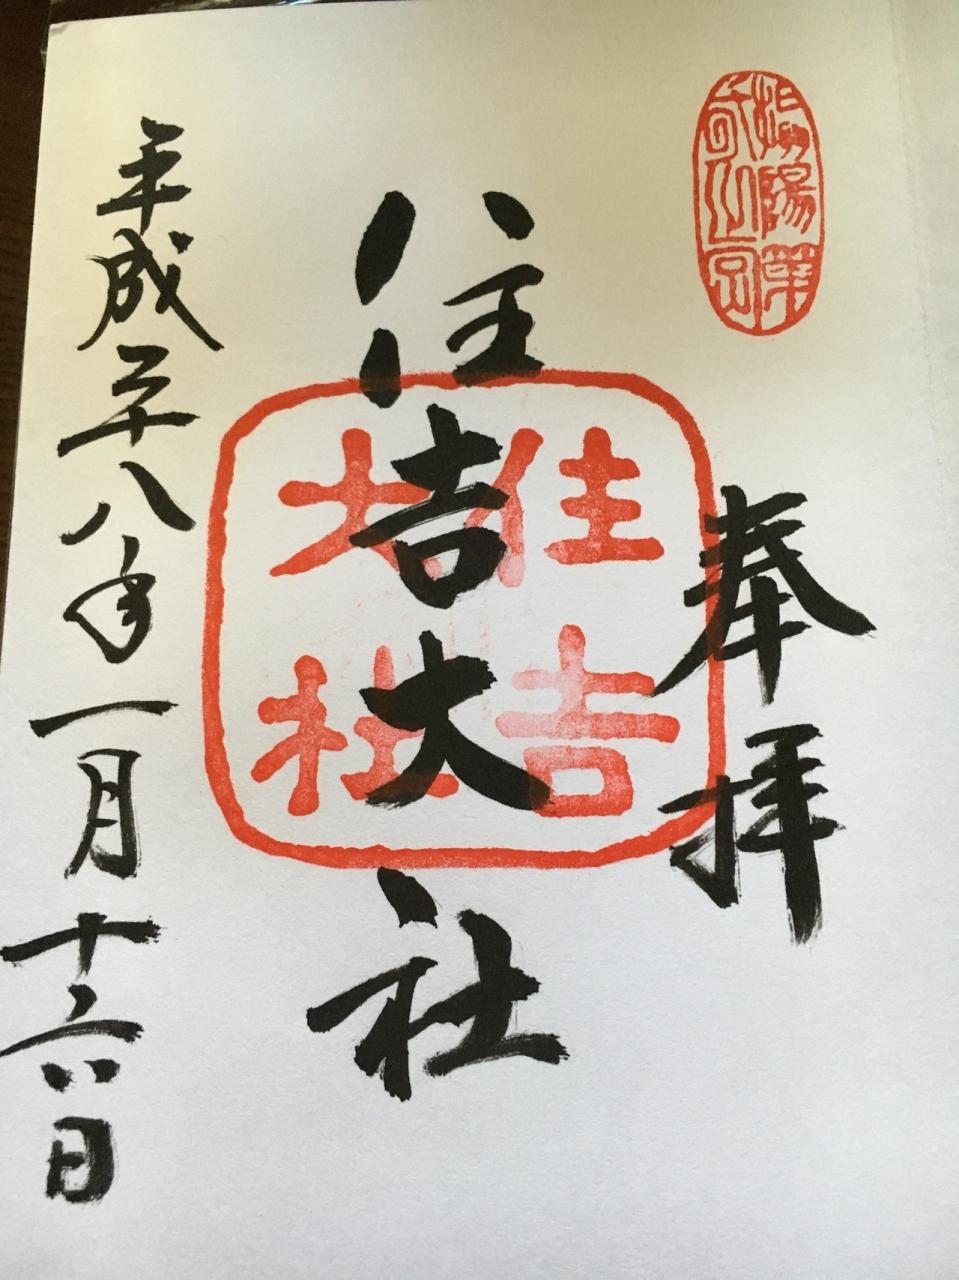 奉拝
住吉大社
住吉
大社
平成二十八年一月十六日